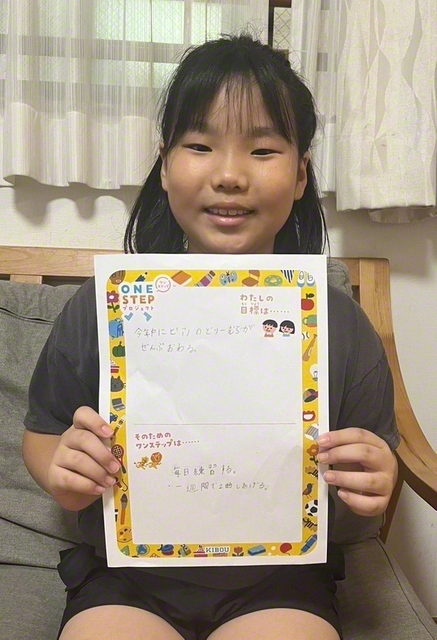 ONE
STEP
プロジェクト
わたしの
目標は……
今年中にピアノのどりーむ5が
ぜんぶおわる。
そのための
ワンステップは……
毎日練習する。
・一週間で1曲しあげる。
KIBOU